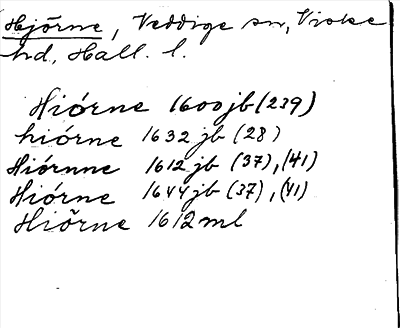 Hjörne, Veddige sn, Viske
hd, Hall. l.
Hiórne 1600jb (239)
hiórne 1632 jb (28)
Hiórnne 1612 jb (37), (41)
Hiórne 1644 jb (37), (41)
Hiörne 1612 ml